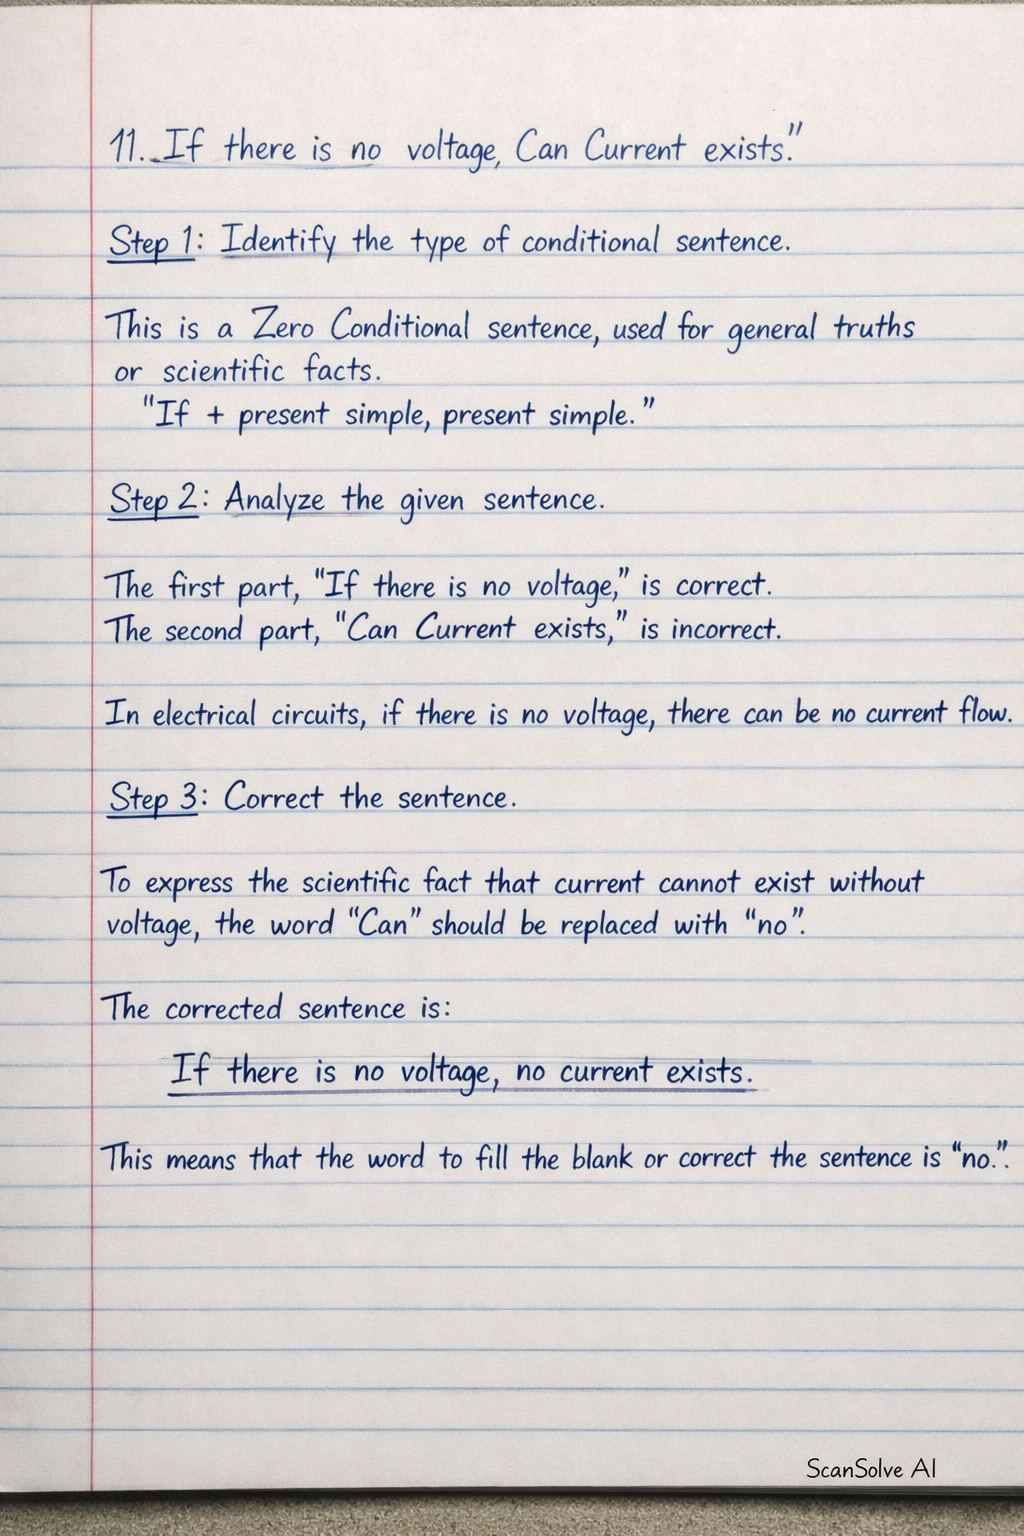 11. If there is no voltage, Can Current exists."
Step 1: Identify the type of conditional sentence.
This is a Zero Conditional sentence, used for general truths
or scientific facts.
"If + present simple, present simple."
Step 2: Analyze the given sentence.
The first part, "If there is no voltage," is correct.
The second part, "Can Current exists," is incorrect.
In electrical circuits, if there is no voltage, there can be no current flow.
Step 3: Correct the sentence.
To express the scientific fact that current cannot exist without
voltage, the word "Can" should be replaced with "no".
The corrected sentence is:
If there is no voltage, no current exists.
This means that the word to fill the blank or correct the sentence is "no.".
ScanSolve AI